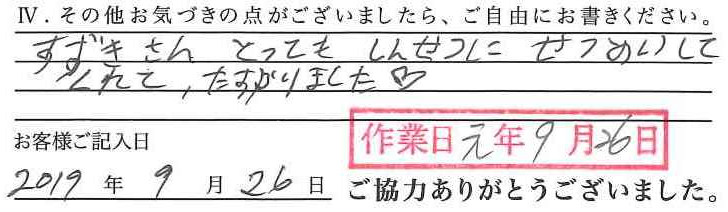 Ⅳ．その他お気づきの点がございましたら、ご自由にお書きください。
すずきさん とっても しんせつに せつめいして
くれて，たすかりました♡
お客様ご記入日
作業日元年9月26日
2019年9月26日 ご協力ありがとうございました。